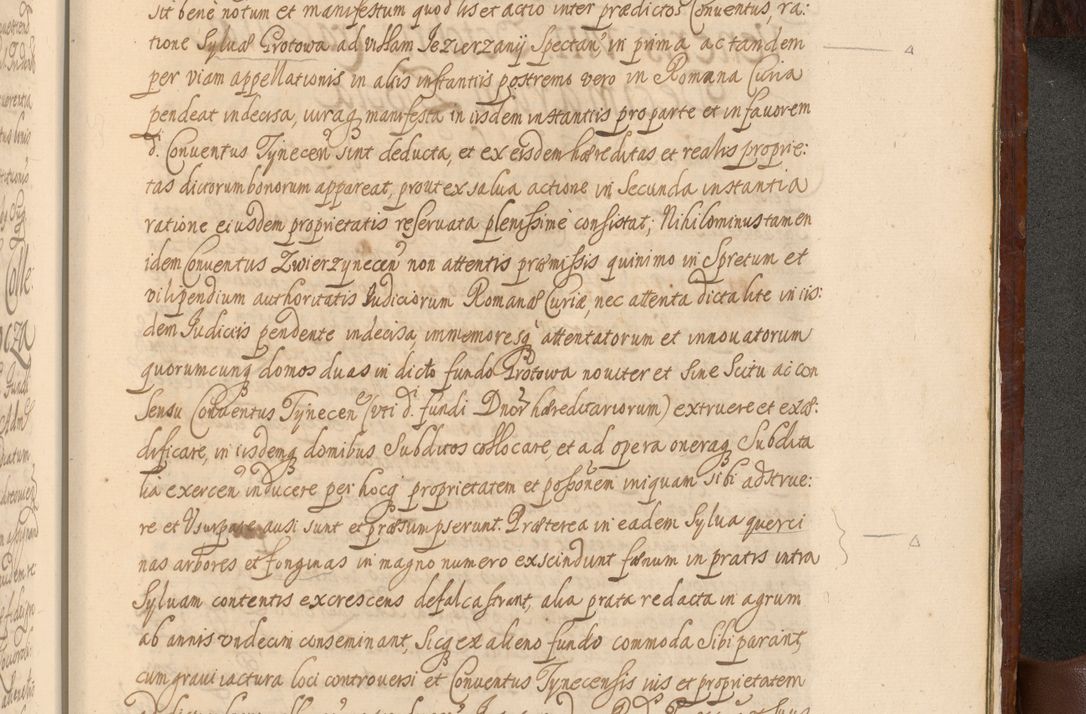 sit bene notum et manifestum quod lis et actio inter prædictos Conventus, ra:
tione Sylvæ Grotowa ad villam Jezierzanij Spectan̄ in prima ac tandem
per viam appellationis in aliis instantiis postremo vero in Romana Curia
pendeat indecisa, iuraq manifesta in iisdem instantiis pro parte et in favorem
d. Conventus Tynecen̄ sint deducta, et ex eisdem hæreditas et realis proprie:
tas dictorum bonorum appareat, prout ex salva actione in Secunda instantia
ratione eiusdem proprietatis reservata plenissime consistat; Nihilominus tamen
idem Conventus Zwierzynecen̄ non attentis præmissis quinimo in Spretum et
vilipendium authoritatis Judiciorum Romanæ Curiæ, nec attenta dicta lite in iis:
dem Judiciis pendente indecisa, immemoresq attentatorum et innovatorum
quorumcunq domos duas in dicto fundo Grotowa noviter et Sine Scitu ac con
sensu Conventus Tynecen̄ (uti d. fundi Dnor hæreditariorum) extruere et exæ:
dificare, in iisdemq domibus Subditos collocare, et ad opera oneraq Subdita
lia exercen̄ inducere per hocq proprietatem et possōnem iniquam Sibi adstrue:
re et Usurpare ausi sunt et præsumpserunt. Præterea in eadem Sylva querci
nas arbores et fonginas in magno numero exscindunt fænum in pratis intra
Sylvam contentis excrescens defalcastrant, alia prata redacta in agrum
ab annis undecim conseminant, Sicq ex alieno fundo commoda Sibi parant,
cum gravi iactura loci controversi et Conventus Tynecensis vis et proprietatem